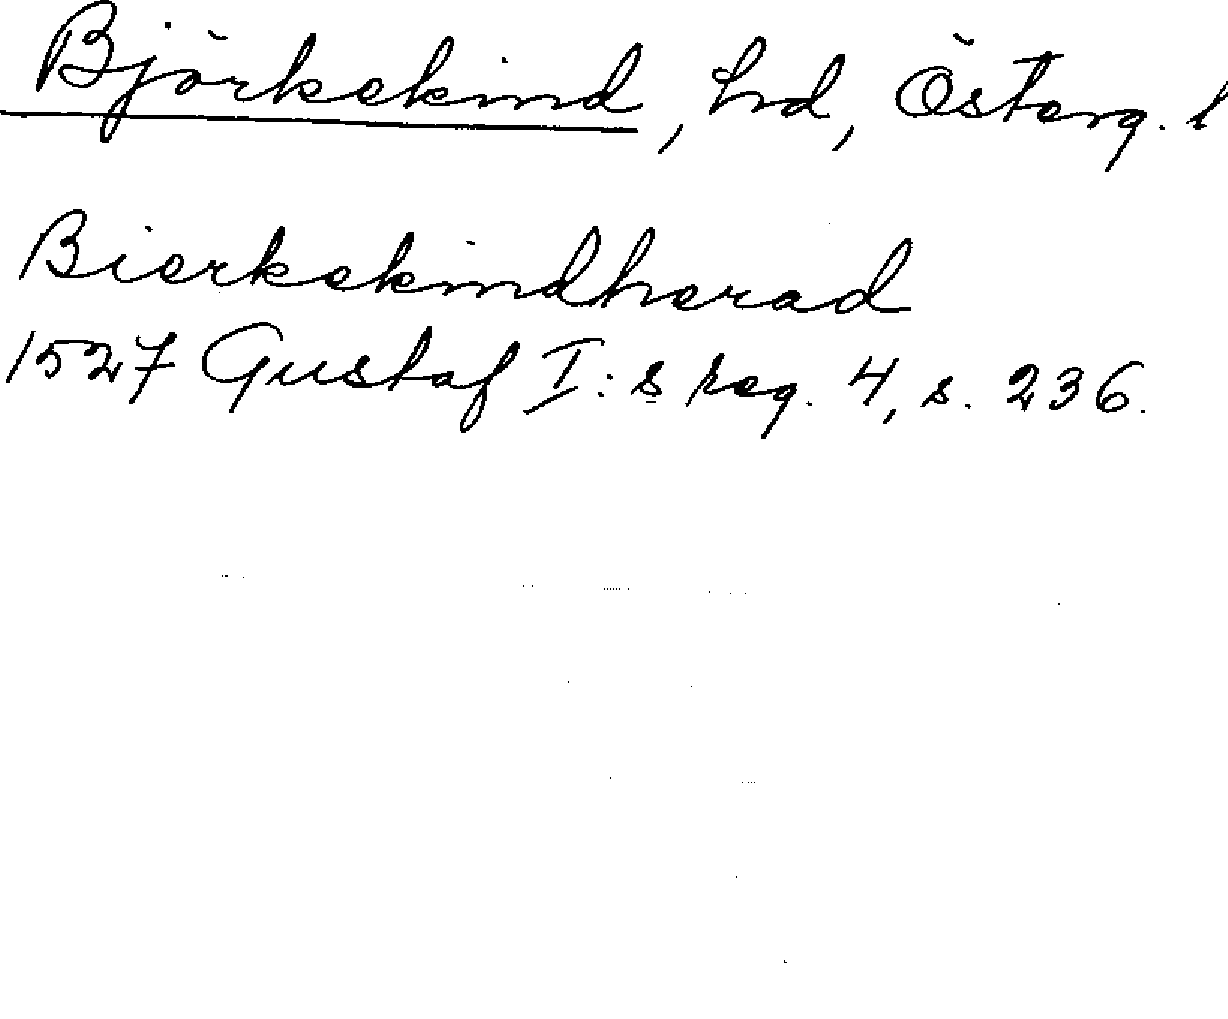 Björkekind, hd, Österg. l
Bierkekindherad
1527 Gustaf I:s reg. 4, s. 236.